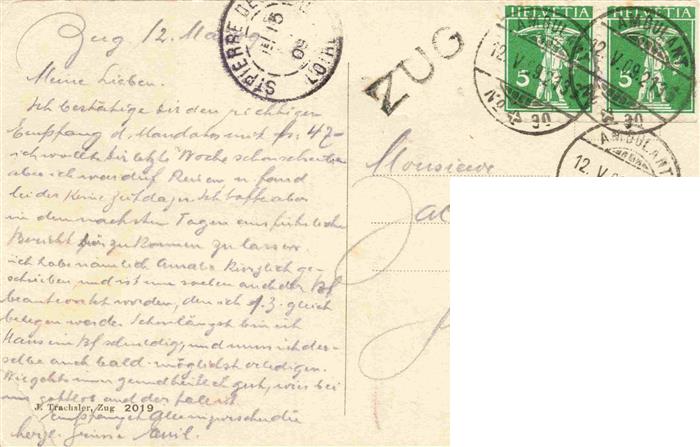 Zug 12. Mai 09
Meine Lieben.
Ich bestätige dir den richtigen
Empfang d. Mandates mit frs. 47.-
ich wollte dir letzte Woche schon schreiben
aber ich war auf Reisen u. fand
leider keine Zeit dazu. Ich hoffe aber
in den nächsten Tagen ausführliche
Bericht zukommen zu lassen.
ich habe nämlich kürzlich ge-
schrieben und ist nun soeben auch der Bf
beantwortet worden, den ich s. Z. gleich
beilegen werde. Schon längst bin ich
Hans ein Bf schuldig, und muss ich der-
selbe auch bald-möglichst erledigen.
Wie geht's immer gesundheitlich gut, wies bei
uns gottlob auch der Fall ist.
Empfanget Alle inzwischen die
herzl. Grüsse Emil.
J. Trachsler, Zug 2019
ST PIERRE DE
15
09
ZUG
HELVETIA
5
HELVETIA
5
AMBULANT
12. V. 09
AMBULANT
12. V. 09
AMBULANT
12. V.
Monsieur